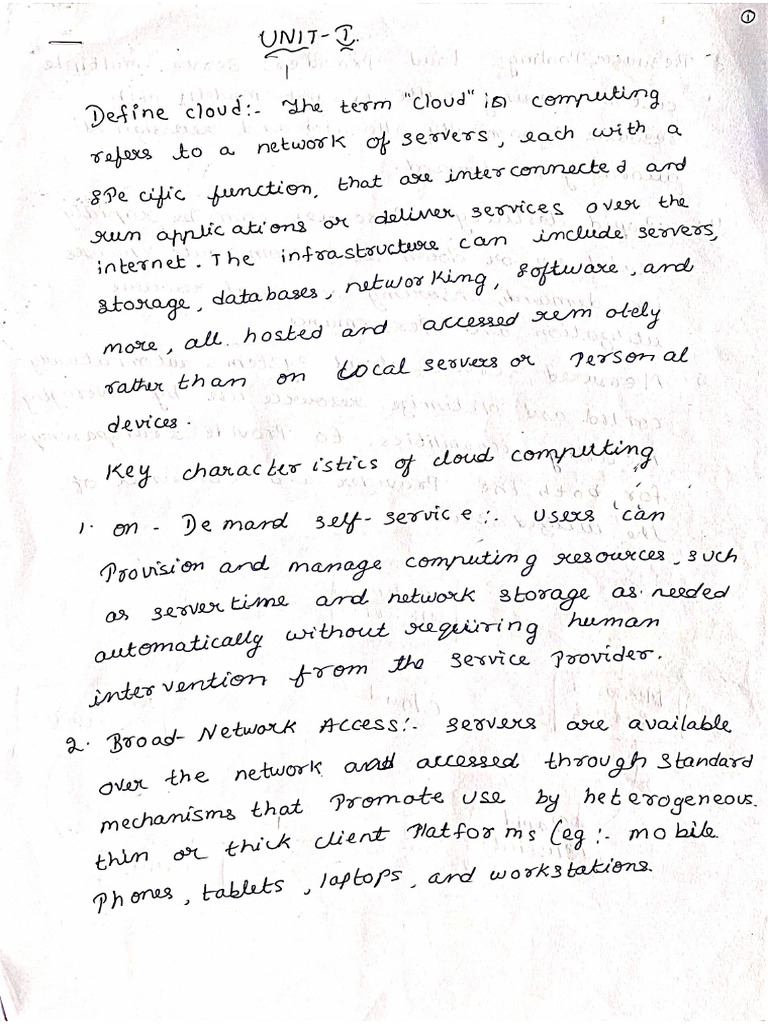 1
UNIT-I.
Define cloud:- The term "cloud" is computing
refers to a network of servers, each with a
specific function, that are interconnected and
run applications or deliver services over the
internet. The infrastructure can include servers,
storage, databases, networking, software, and
more, all hosted and accessed remotely
rather than on local servers or personal
devices.
Key characteristics of cloud computing
1. on-Demand self-service:- users can
Provision and manage computing resources, such
as server time and network storage as needed
automatically without requiring human
intervention from the service provider.
2. Broad-Network Access:- servers are available
over the network and accessed through standard
mechanisms that promote use by heterogeneous
thin or thick client Platforms (eg:- mobile
Phones, tablets, laptops, and workstations.